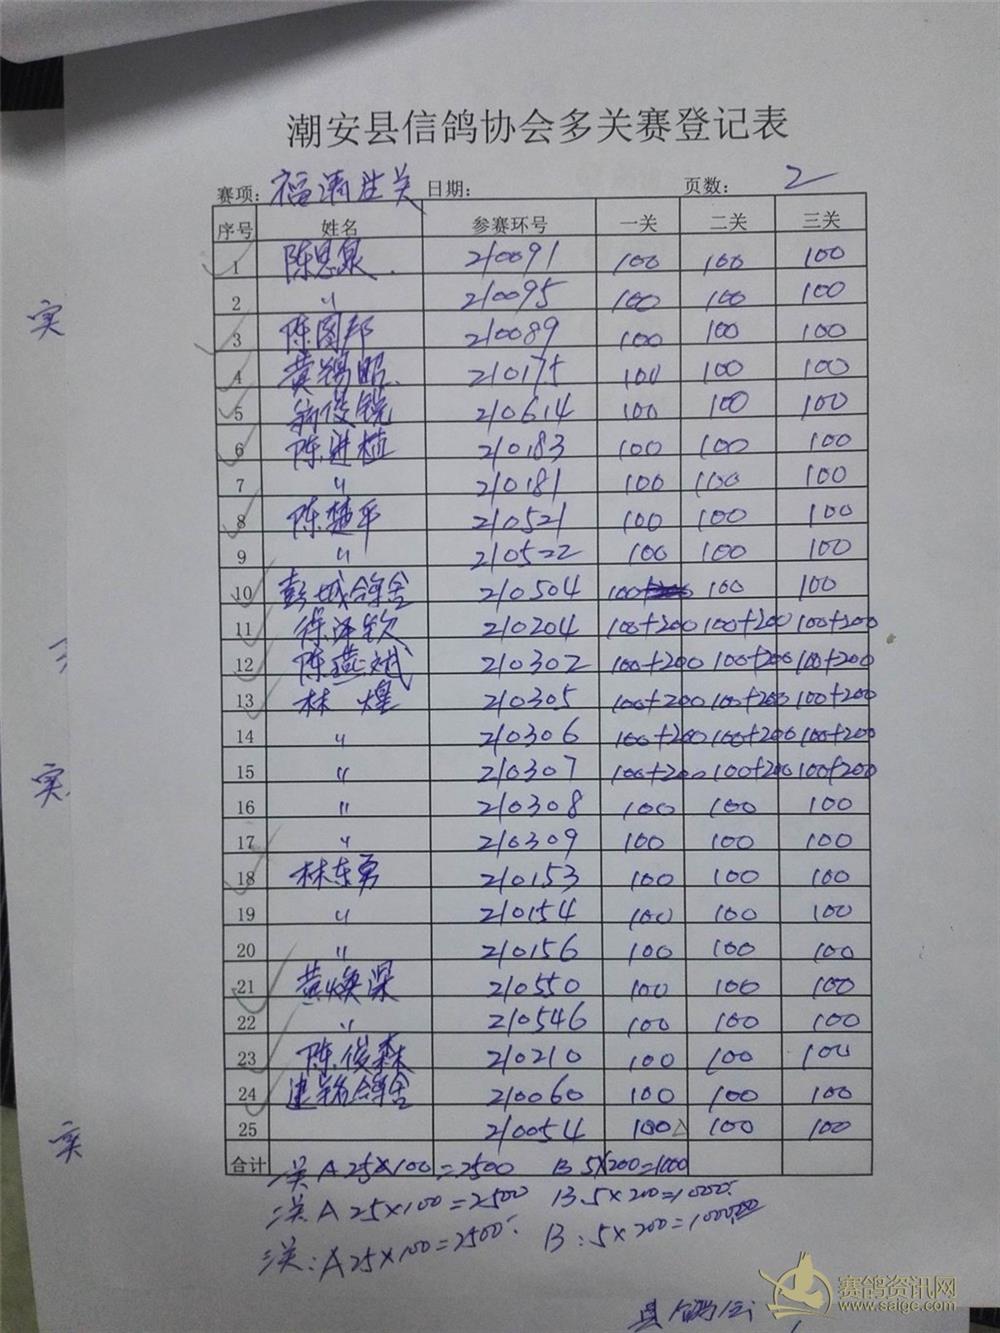 潮安县信鸽协会多关赛登记表
赛项: 福清 关 日期: 页数: 2
序号 姓名 参赛环号 一关 二关 三关
1 陈思泉 210091 100 100 100
2 〃 210095 100 100 100
3 陈图邦 210089 100 100 100
4 黄锡昭 210175 100 100 100
5 俊锐 210614 100 100 100
6 陈进植 210183 100 100 100
7 〃 210181 100 100 100
8 陈楚平 210521 100 100 100
9 〃 210522 100 100 100
10 彭城合鸽舍 210504 100 100 100
11 徐泽钦 210204 100+200 100+200 100+200
12 陈燕斌 210302 100+200 100+200 100+200
13 林煌 210305 100+200 100+200 100+200
14 〃 210306 100+200 100+200 100+200
15 〃 210307 100+200 100+200 100+200
16 〃 210308 100 100 100
17 〃 210309 100 100 100
18 林东勇 210153 100 100 100
19 〃 210154 100 100 100
20 〃 210156 100 100 100
21 黄焕深 210550 100 100 100
22 〃 210546 100 100 100
23 陈俊森 210210 100 100 100
24 建 鸽舍 210060 100 100 100
25 210054 100 100 100
合计 一关 A 25×100=2500 B 5×200=1000
二关 A 25×100=2500 B.5×200=1000
三关: A 25×100=2500 B:5×200=1000
实
实
实
县鸽会
赛鸽资讯网
www.saigc.com